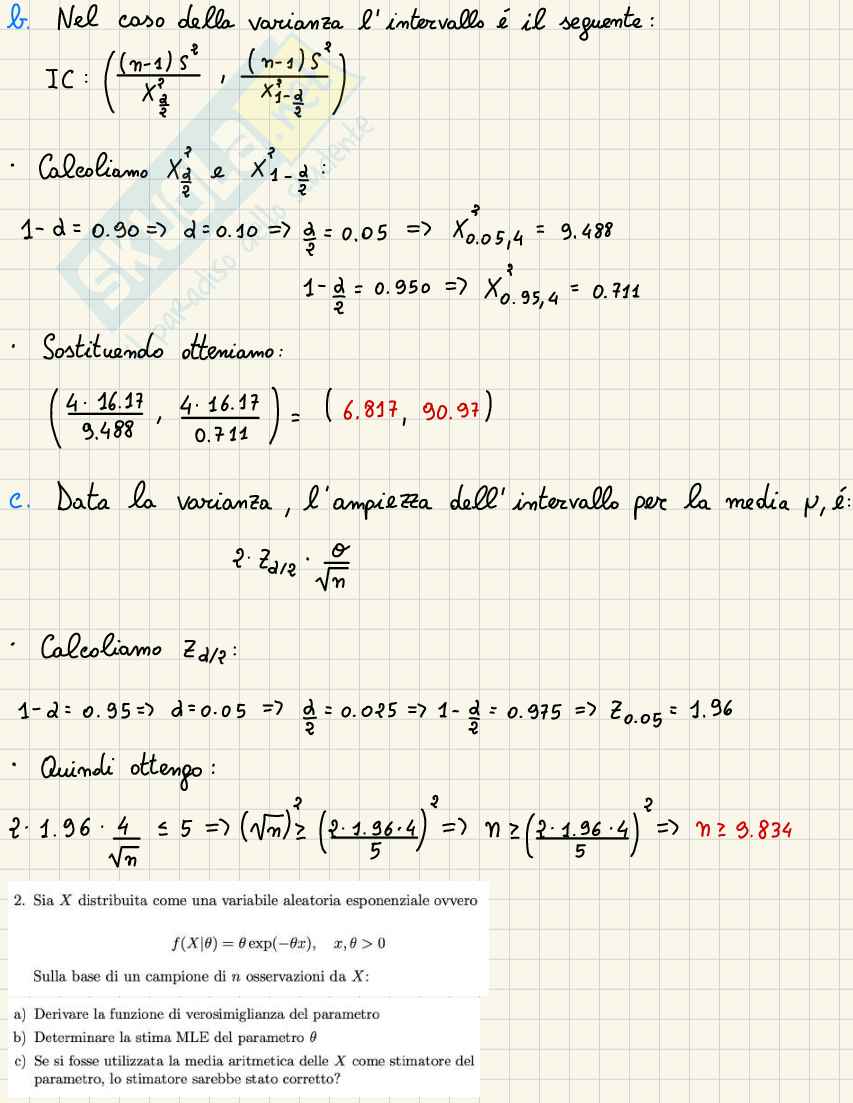 b. Nel caso della varianza l'intervallo é il seguente:
IC: ( (n-1) S² / X²_{α/2} , (n-1) S² / X²_{1-α/2} )
SKUOLA.net
il paradiso dello studente
· Calcoliamo X²_{α/2} e X²_{1-α/2} :
1-α = 0.90 => α = 0.10 => α/2 = 0.05 => X²_{0.05,4} = 9.488
1-α/2 = 0.950 => X²_{0.95,4} = 0.711
· Sostituendo otteniamo:
( 4·16.17 / 9.488 , 4·16.17 / 0.711 ) = ( 6.817, 90.97 )
c. Data la varianza, l'ampiezza dell'intervallo per la media μ, é:
2· Z_{α/2} · σ/√n
· Calcoliamo Z_{α/2} :
1-α = 0.95 => α = 0.05 => α/2 = 0.025 => 1-α/2 = 0.975 => Z_{0.05} = 1.96
· Quindi ottengo :
2·1.96 · 4/√n ≤ 5 => (√n)² ≥ (2·1.96·4 / 5)² => n ≥ (2·1.96·4 / 5)² => n ≥ 9.834
2. Sia X distribuita come una variabile aleatoria esponenziale ovvero
f(X|θ) = θ exp(−θx), x, θ > 0
Sulla base di un campione di n osservazioni da X:
a) Derivare la funzione di verosimiglianza del parametro
b) Determinare la stima MLE del parametro θ
c) Se si fosse utilizzata la media aritmetica delle X come stimatore del
parametro, lo stimatore sarebbe stato corretto?